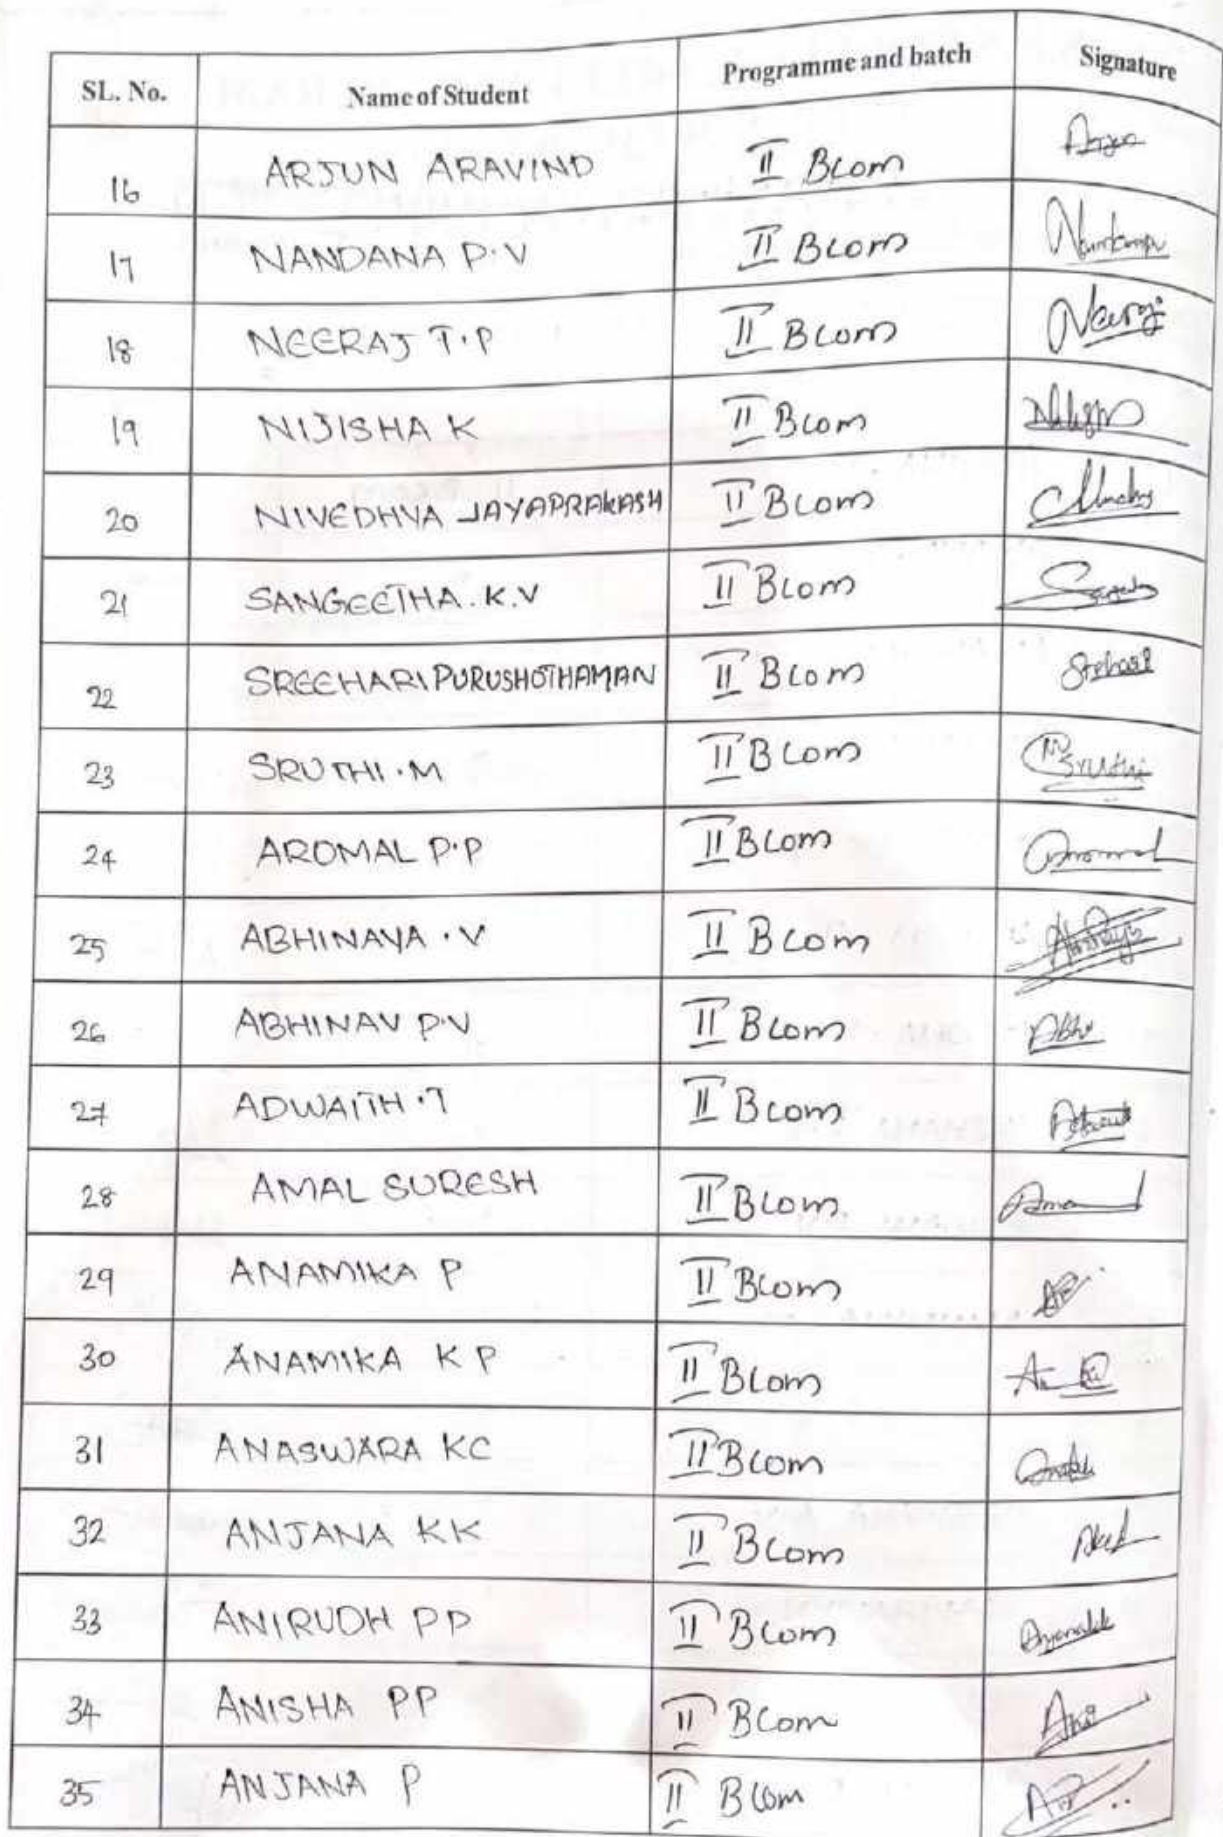 SL. No. Name of Student Programme and batch Signature
16 ARJUN ARAVIND II BCom Arjun
17 NANDANA P.V II BCom
18 NEERAJ T.P II BCom Neeraj
19 NIJISHA K II BCom
20 NIVEDHYA JAYAPRAKASH II BCom
21 SANGEETHA. K.V II BCom
22 SREEHARI PURUSHOTHAMAN II BCom
23 SRUTHI.M II BCom Sruthi
24 AROMAL P.P II BCom Aromal
25 ABHINAYA.V II BCom
26 ABHINAV P.V II BCom Abhi
27 ADWAITH.T II BCom
28 AMAL SURESH II BCom
29 ANAMIKA P II BCom
30 ANAMIKA K P II BCom
31 ANASWARA KC II BCom
32 ANJANA KK II BCom
33 ANIRUDH PP II BCom
34 ANISHA PP II BCom
35 ANJANA P II BCom